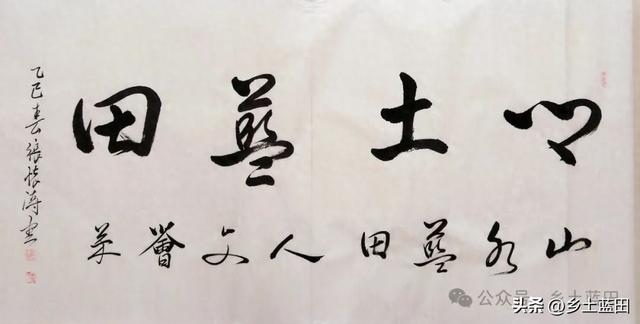 乡土藍田
山水藍田人文薈萃
乙巳春張懷濤書
公众号 · 乡土蓝田
头条 @乡土蓝田